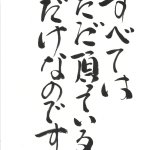 すべては
ただ頂いている
だけなのです